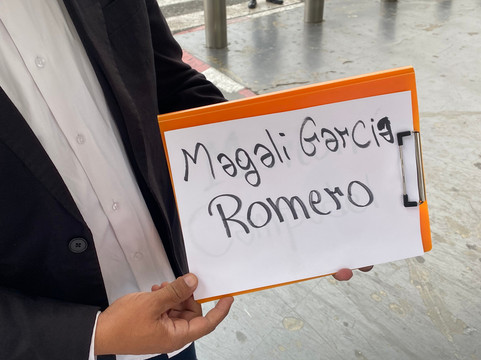 Magali Garcia
Romero